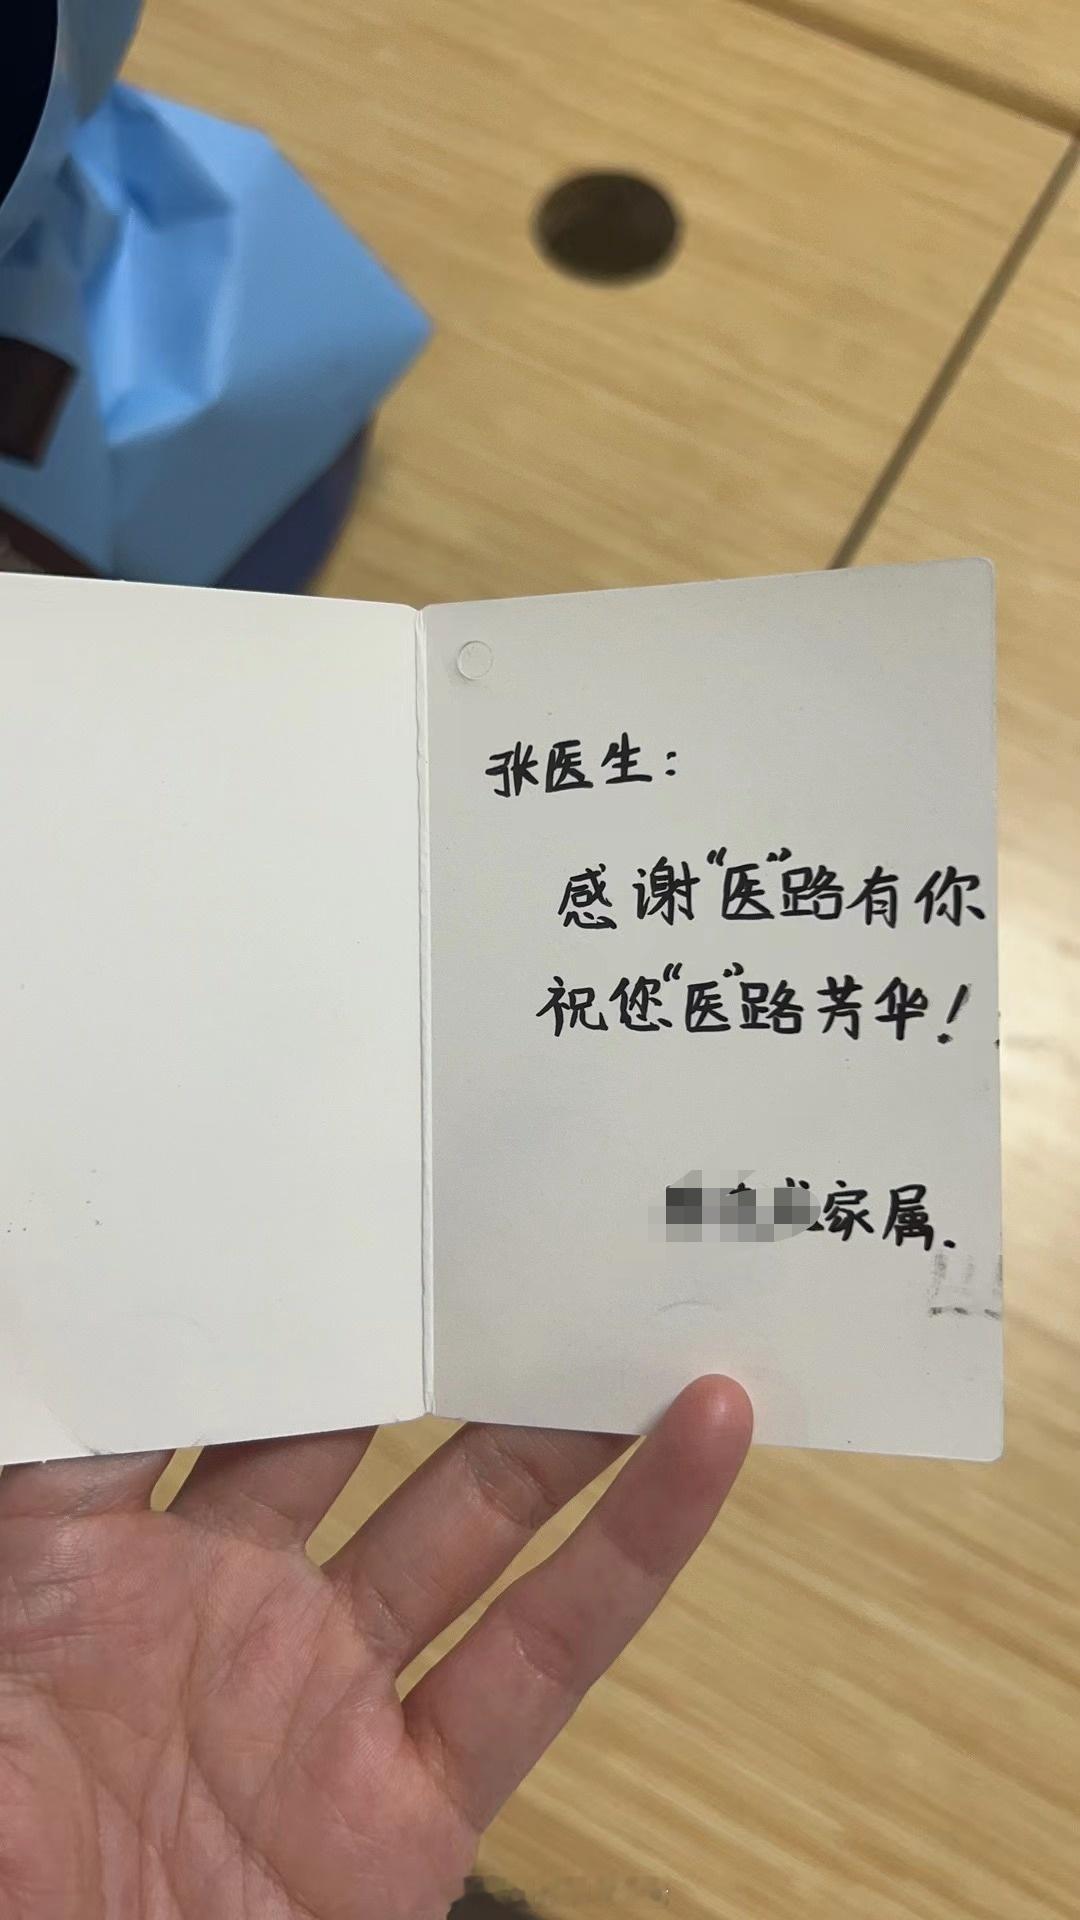 张医生：
感谢“医”路有你
祝您“医”路芳华！
家属.